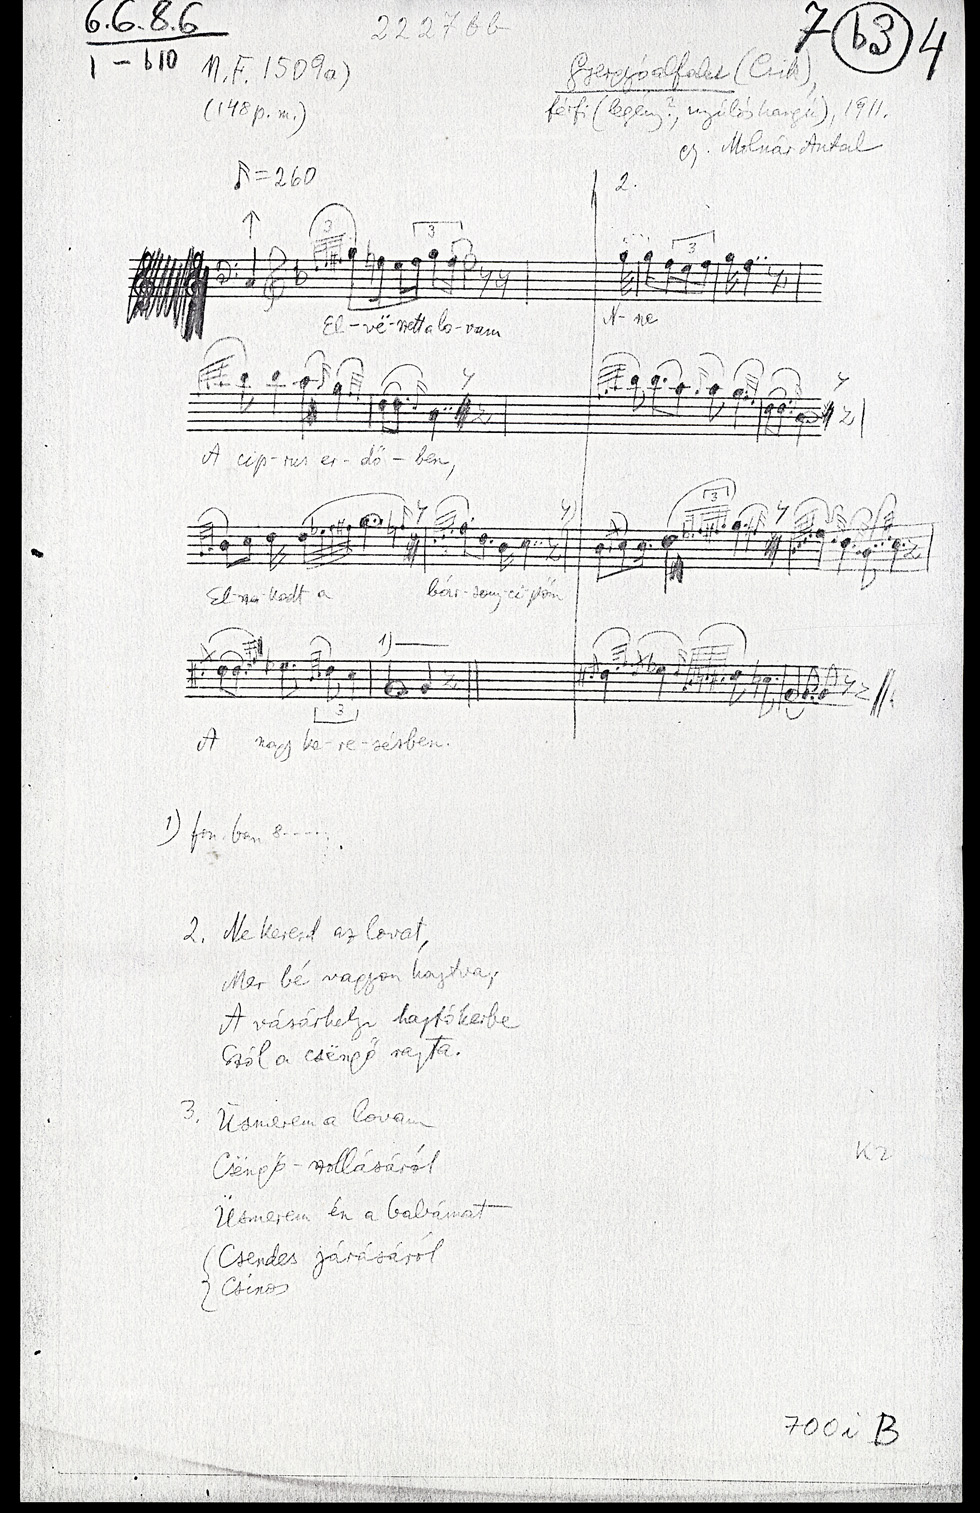 6.6.8.6
22276b
7 b3 4
1 – b10
M.F. 1509a)
Gyergyóalfalu (Csík),
(148 p.m.)
férfi (legény?, nyúlóshangú), 1911.
gy. Molnár Antal
= 260
2.
3
3
3
El-vë-szett a lo-vam
N- ne
A cip-rus er-dő-ben,
3
El-
a
bár-sony-ci-pőm
1)
3
A nagy ke-re-sésben.
1) fon. ban 8-----
2. Ne keresd az lovat,
Mer bé vagyon hajtva,
A vásárhelyi hajtókerbe
Szól a csëngő rajta.
3. Üsmerem a lovam
Csëngő-szollásáról
Üsmerem én a babámat
Csendes járásáról
Csinos
K2
700i B